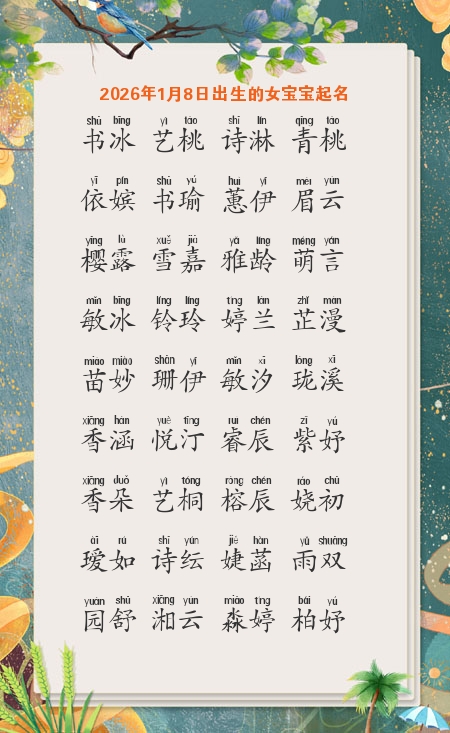 2026年1月8日出生的女宝宝起名
shū bīng yì táo shī lín qīng táo
书冰 艺桃 诗淋 青桃
yī pín shū yú huì yī méi yún
依嫔 书瑜 蕙伊 眉云
yīng lù xuě jiā yǎ líng méng yán
樱露 雪嘉 雅龄 萌言
mǐn bīng líng líng tíng lán zhǐ màn
敏冰 铃玲 婷兰 芷漫
miáo miào shān yī mǐn xī lóng xī
苗妙 珊伊 敏汐 珑溪
xiāng hán yuè tīng ruì chén zǐ yú
香涵 悦汀 睿辰 紫妤
xiāng duǒ yì tóng róng chén ráo chū
香朵 艺桐 榕辰 娆初
ài rú shī yún jié hàn yǔ shuāng
瑷如 诗纭 婕菡 雨双
yuán shū xiāng yún miǎo tíng bǎi yú
园舒 湘云 淼婷 柏妤